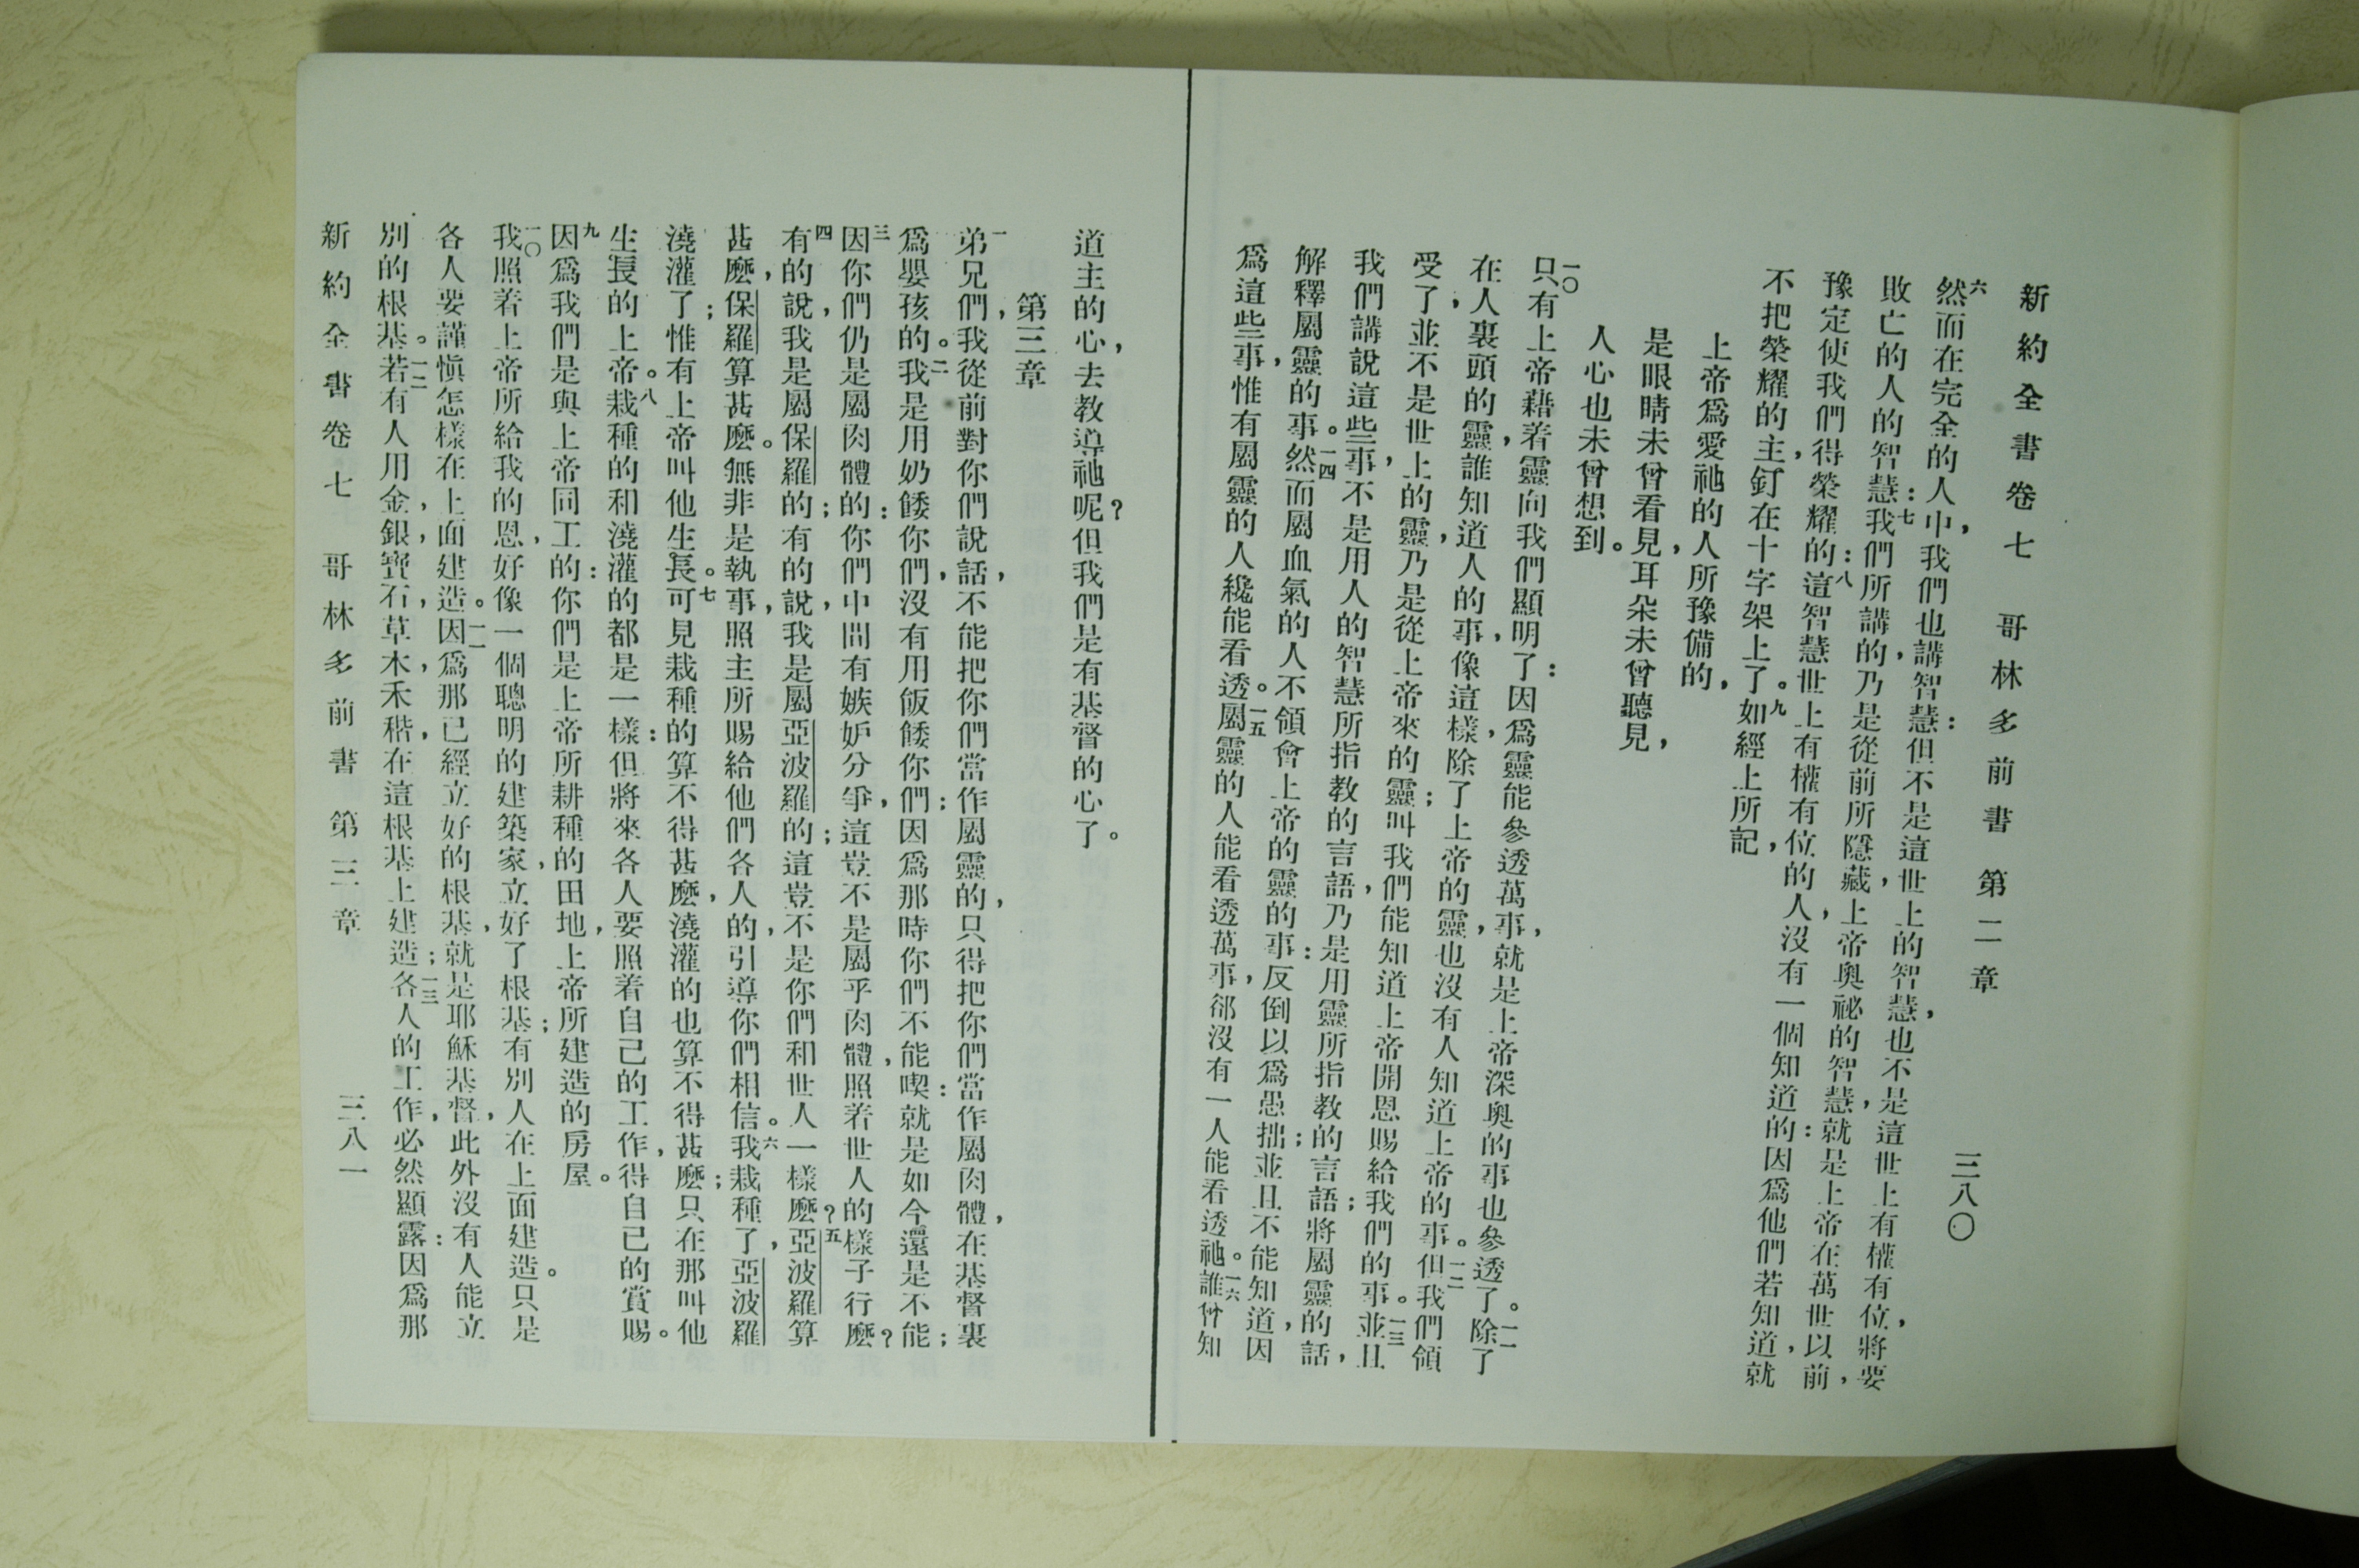 新約全書卷七 哥林多前書 第二章 三八〇
六然而在完全的人中，我們也講智慧：但不是這世上的智慧，也不是這世上有權有位，將要
敗亡的人的智慧：七我們所講的，乃是從前所隱藏，上帝奧祕的智慧，就是上帝在萬世以前，
豫定使我們得榮耀的：八這智慧世上有權有位的人，沒有一個知道的：因爲他們若知道，就
不把榮耀的主，釘在十字架上了。九如經上所記，
上帝爲愛祂的人所豫備的，
是眼睛未曾看見，耳朵未曾聽見，
人心也未曾想到。
一〇只有上帝藉着靈向我們顯明了：因爲靈能參透萬事，就是上帝深奧的事也參透了。一一除了
在人裏頭的靈，誰知道人的事，像這樣，除了上帝的靈，也沒有人知道上帝的事。一二但我們領
受了，並不是世上的靈，乃是從上帝來的靈；叫我們能知道上帝開恩賜給我們的事。一三並且
我們講說這些事，不是用人的智慧所指教的言語，乃是用靈所指教的言語；將屬靈的話，
解釋屬靈的事。一四然而屬血氣的人不領會上帝的靈的事：反倒以爲愚拙；並且不能知道，因
爲這些事，惟有屬靈的人纔能看透。一五屬靈的人能看透萬事，郤沒有一人能看透祂。一六誰曾知
道主的心，去教導祂呢？但我們是有基督的心了。
第三章
一弟兄們，我從前對你們說話，不能把你們當作屬靈的，只得把你們當作屬肉體，在基督裏
爲嬰孩的。二我是用奶餧你們，沒有用飯餧你們：因爲那時你們不能喫：就是如今還是不能；
三因你們仍是屬肉體的：你們中間有嫉妒分爭，這豈不是屬乎肉體，照着世人的樣子行麽？
四有的說，我是屬保羅的；有的說，我是屬亞波羅的；這豈不是你們和世人一樣麽？五亞波羅算
甚麽，保羅算甚麽。無非是執事，照主所賜給他們各人的，引導你們相信。六我栽種了，亞波羅
澆灌了；惟有上帝叫他生長。七可見栽種的算不得甚麽，澆灌的也算不得甚麽；只在那叫他
生長的上帝。八栽種的和澆灌的都是一樣：但將來各人要照着自己的工作，得自己的賞賜。
九因爲我們是與上帝同工的：你們是上帝所耕種的田地，上帝所建造的房屋。
一〇我照着上帝所給我的恩，好像一個聰明的建築家，立好了根基；有別人在上面建造。只是
各人要謹愼怎樣在上面建造。一一因爲那已經立好的根基，就是耶穌基督，此外沒有人能立
別的根基。一二若有人用金，銀，寶石，草木，禾稭，在這根基上建造；一三各人的工作，必然顯露：因爲那
新約全書卷七 哥林多前書 第三章 三八一